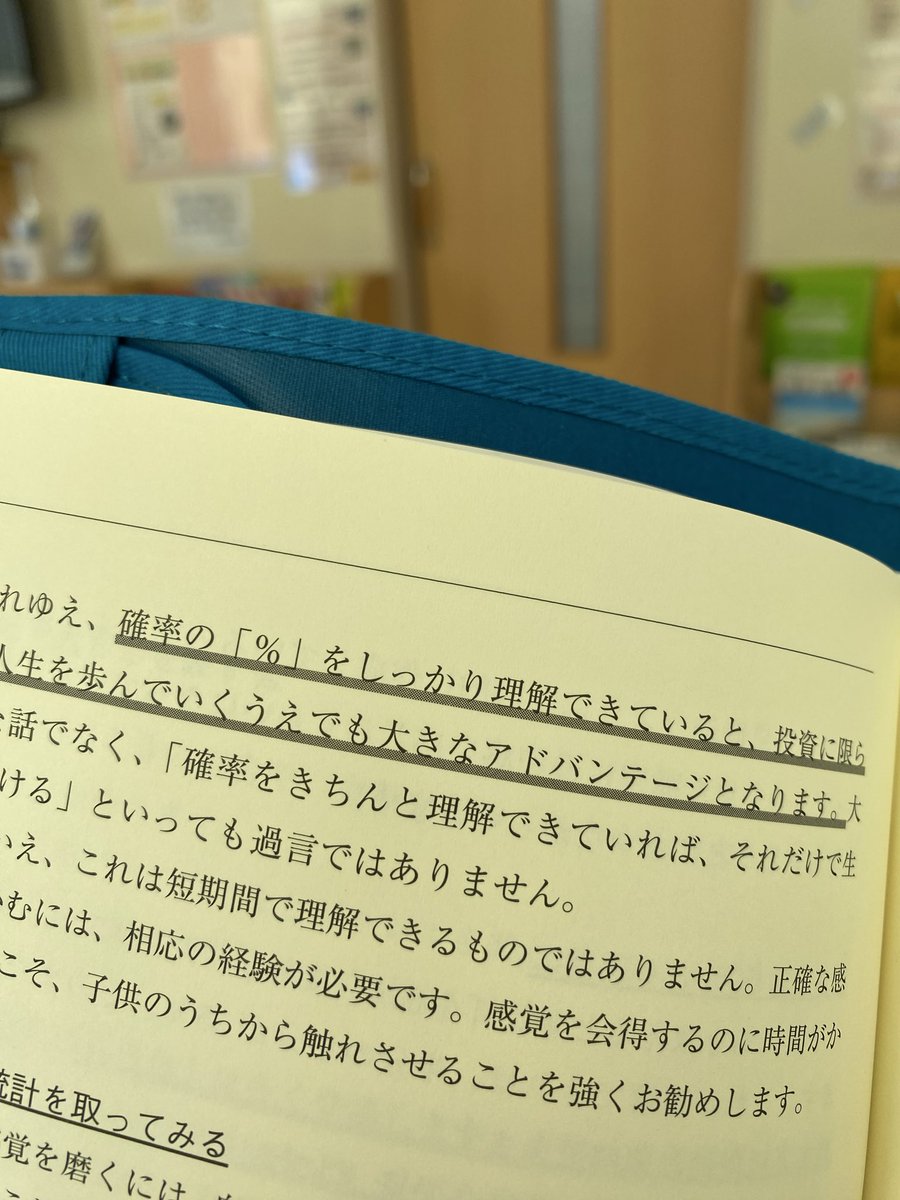 れゆえ、確率の「%」をしっかり理解できていると、投資に限ら
人生を歩んでいくうえでも大きなアドバンテージとなります。大
話でなく、「確率をきちんと理解できていれば、それだけで生
ける」といっても過言ではありません。
いえ、これは短期間で理解できるものではありません。正確な感
むには、相応の経験が必要です。感覚を会得するのに時間がか
こそ、子供のうちから触れさせることを強くお勧めします。
統計を取ってみる
覚を磨くには、